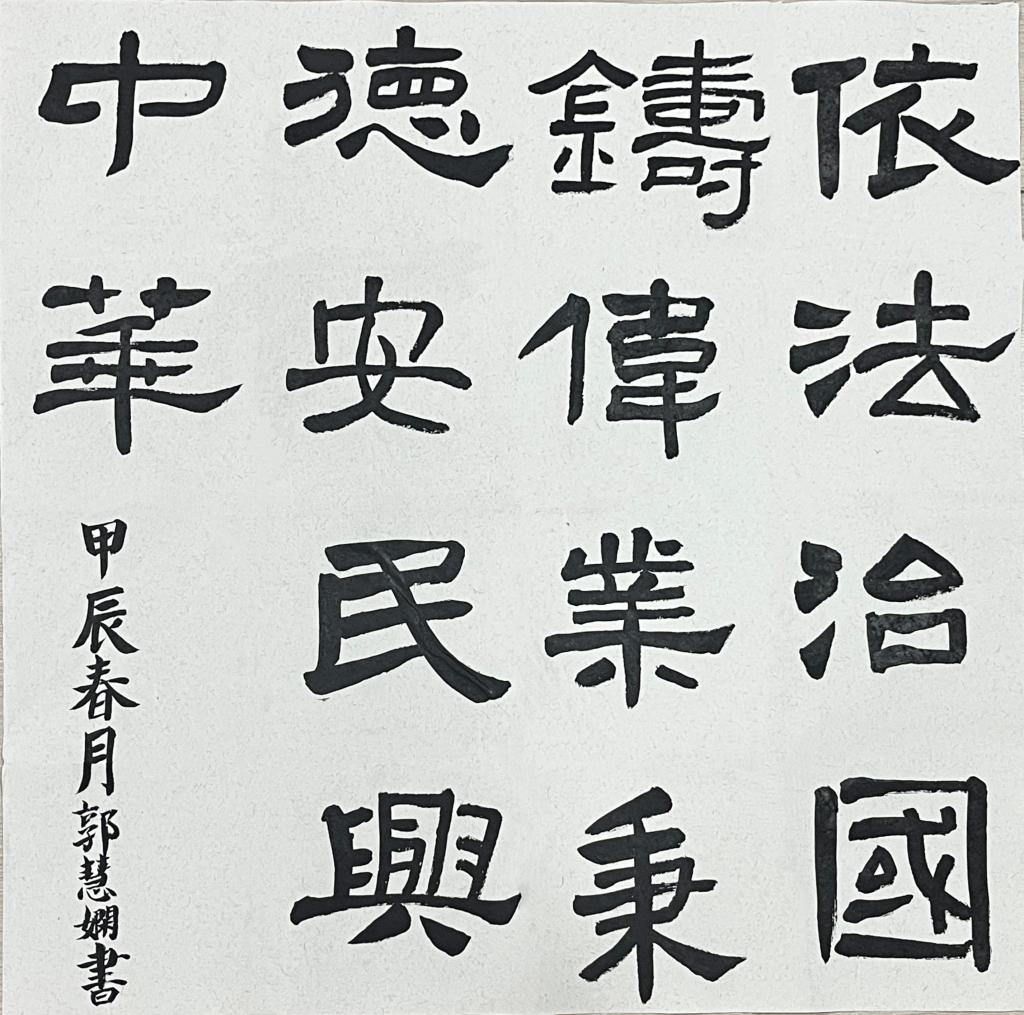 依法治國
鑄偉業秉
德安民興
中華
甲辰春月郭慧嫻書